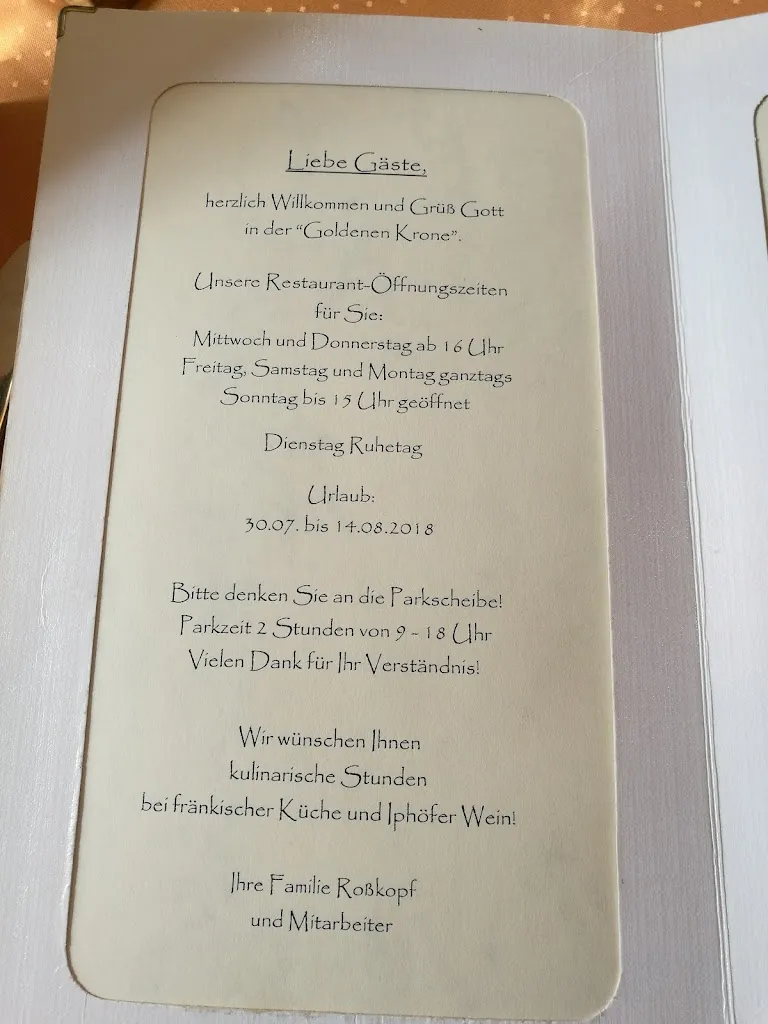 Liebe Gäste,
herzlich Willkommen und Grüß Gott
in der "Goldenen Krone".
Unsere Restaurant-Öffnungszeiten
für Sie:
Mittwoch und Donnerstag ab 16 Uhr
Freitag, Samstag und Montag ganztags
Sonntag bis 15 Uhr geöffnet
Dienstag Ruhetag
Urlaub:
30.07. bis 14.08.2018
Bitte denken Sie an die Parkscheibe!
Parkzeit 2 Stunden von 9 - 18 Uhr
Vielen Dank für Ihr Verständnis!
Wir wünschen Ihnen
kulinarische Stunden
bei fränkischer Küche und Iphöfer Wein!
Ihre Familie Roßkopf
und Mitarbeiter